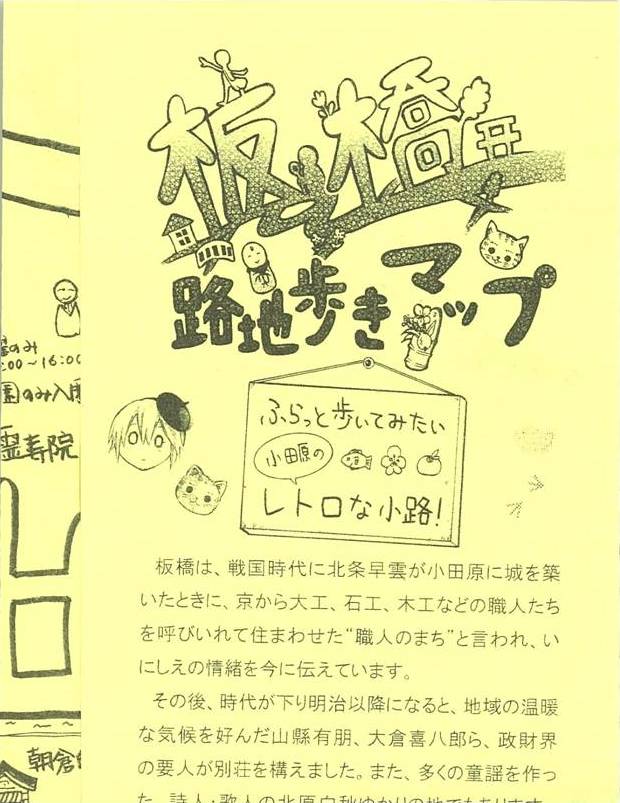 板橋
路地歩きマップ
ふらっと歩いてみたい
小田原の
レトロな小路!
板橋は、戦国時代に北条早雲が小田原に城を築
いたときに、京から大工、石工、木工などの職人たち
を呼びいれて住まわせた“職人のまち”と言われ、い
にしえの情緒を今に伝えています。
その後、時代が下り明治以降になると、地域の温暖
な気候を好んだ山縣有朋、大倉喜八郎ら、政財界
の要人が別荘を構えました。また、多くの童謡を作っ
た、詩人・歌人の北原白秋ゆかりの地でもあります。
のみ
:00~16:00
園のみ入園
霊寿院
朝倉